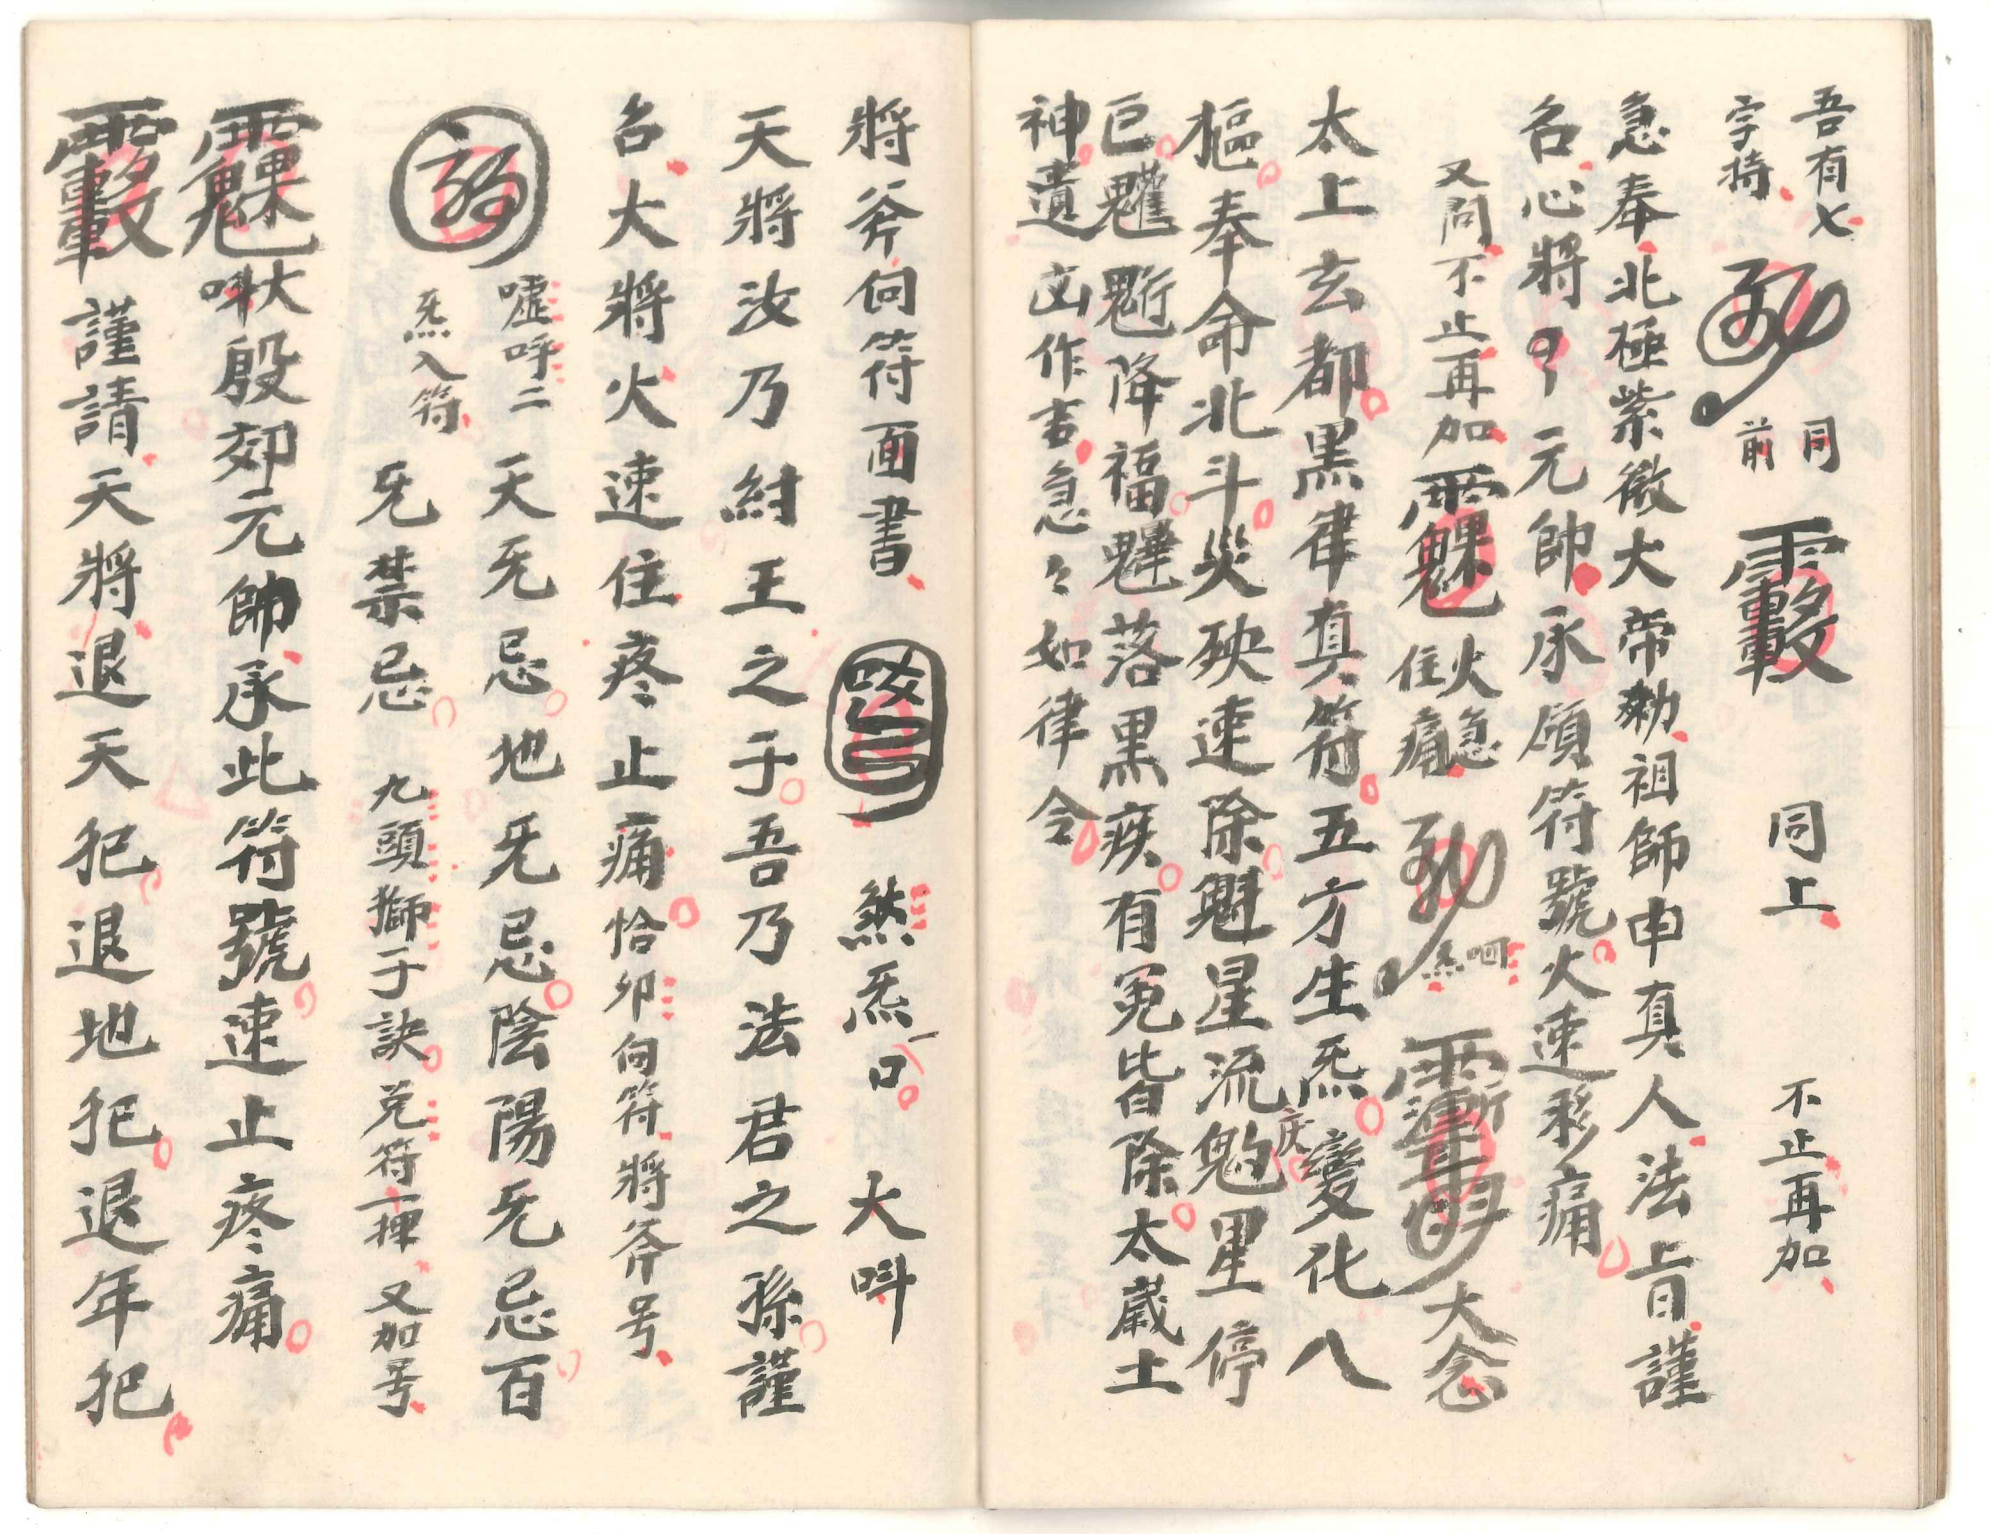 吾有七
字持
同
前
同上
不止再加
急奉北極紫微大帝勅祖師申真人法旨謹
召心將元帥承領符號火速移痛
又問不止再加
火急
住痛
呵
大念
太上玄都黑律真符五方生炁變化八
樞奉命北斗災殃速除魁星流星停
降福落黑疾有冤皆除太歲土
神遺凶作吉急々如律令
將斧向符面書
然炁一口
大叫
天將汝乃紂王之子吾乃法君之孫謹
召大將火速住疼止痛恰卯向符將斧号
噓呼二
天无忌地无忌陰陽无忌百
炁入符
无禁忌
九頭獅子訣兑符一揮又加号
殷郊元帥承此符號速止疼痛
謹請天將退天犯退地犯退年犯